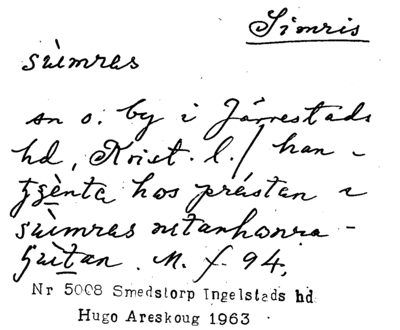 Simris
sùimras
sn o. by i Järrestads
hd, Krist. l./ han
tjènta hos prästan i
sùimras
M. f 94.
Nr 5008 Smedstorp Ingelstads hd
Hugo Areskoug 1963